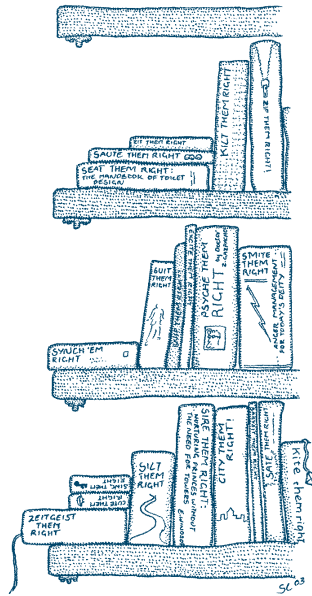 ZIT THEM RIGHT
SAUTE THEM RIGHT
SEAT THEM RIGHT:
THE HANDBOOK OF TOILET
DESIGN
KILT THEM RIGHT
ZIP THEM RIGHT!
SYNCH 'EM
RIGHT
SUIT
THEM
RIGHT
SUITE THEM RIGHT
PSYCHE THEM
RIGHT
by DOCTOR
SMITE
THEM
RIGHT
ANGER MANAGEMENT
FOR TODAY'S DEITY
SINK THEM
RIGHT
CUTE
THEM
RIGHT
ZEITGEIST
THEM
RIGHT
SILT
THEM
RIGHT
SIRE THEM RIGHT:
PROCURING PRINCES WITHOUT
THE NEED FOR TOWELS
CITY THEM
RIGHT!
SATE THEM RIGHT
Kite them right
SC '03